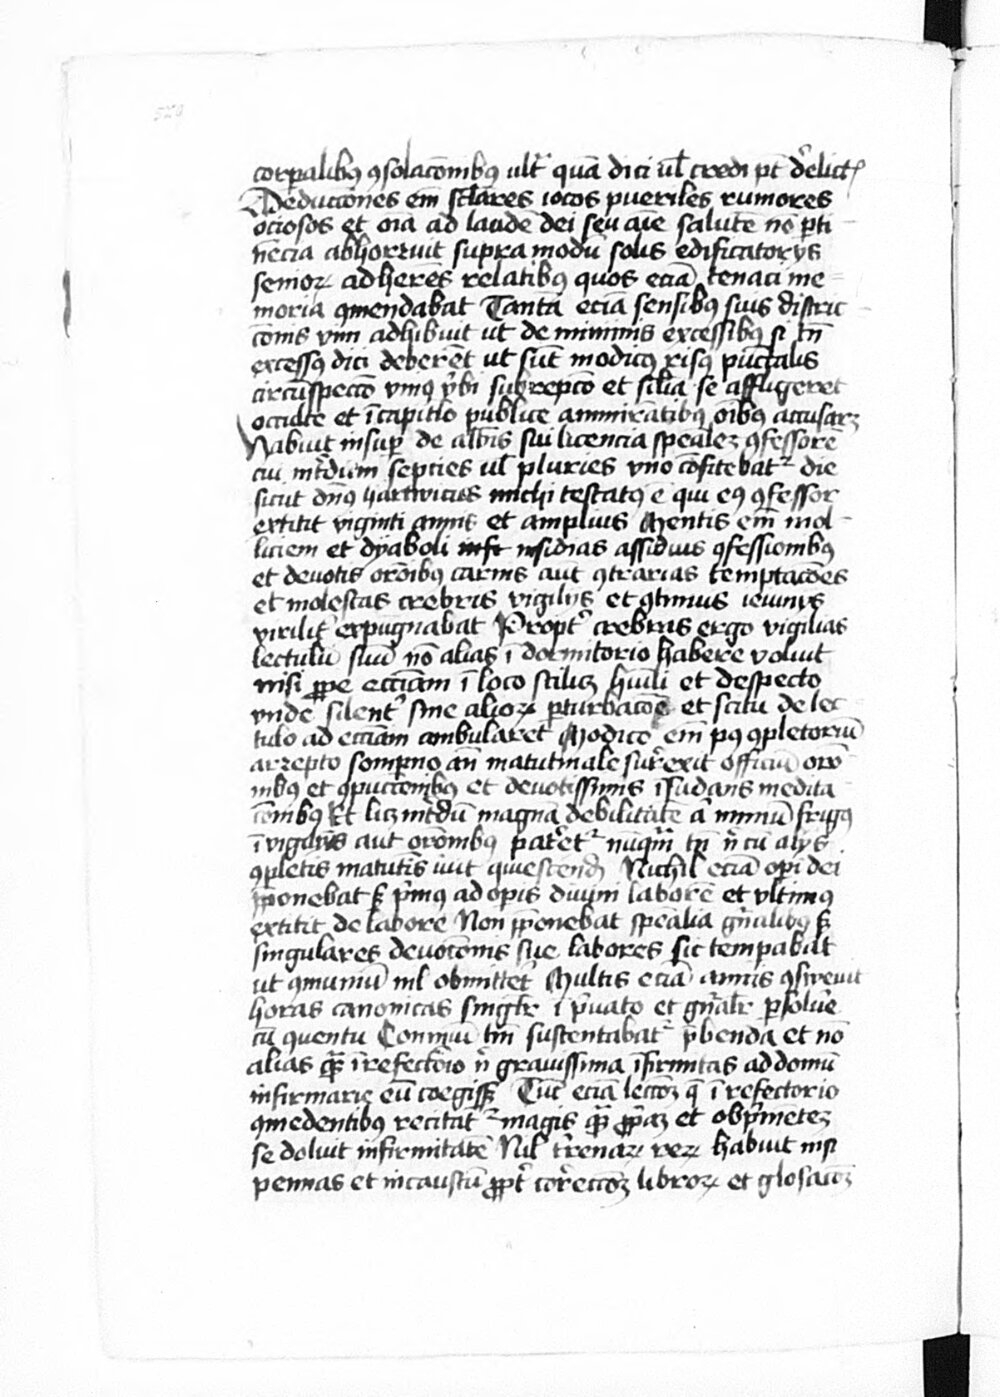 corꝑalibꝰ ꝯsolac̄onibꝰ ult̓ quā dici ul̄ credi pt̄ d̓elict
Deducc̄ones em̄ sc̄lares iocos pueriles rumores
ociosos et oīa ad laudē dei seu aīe salutē nō ꝑti-
nēcia abhorruit supra modū solis edificatorijs
senioꝝ adherēs relatibꝰ quos eciā tenaci me-
moria ꝯmendabat Tantā eciā sensibꝰ suis district-
c̄onis vim adhibuit ut de minimis excessibꝰ si tn̄
excessꝰ dici deberēt ut sūt modicꝰ risꝰ
circūspecc̄o vniꝰ v̓bi subrepc̄o et sīlia se affligeret
occulte et ī capitło publice ammirātibꝰ oībꝰ accusarꝫ
Habuit insuꝑ de abb̄is sui licencia spēalē ꝯfessorē
cui int̓dum septies ul̄ pluries vno cōfitebatᷣ die
sicut dn̄s hartwicus michi testatꝰ ē qui eiꝰ ꝯfessor
extitit viginti annis et amplius Mentis em̄ mol-
liciem et dyaboli insidias assiduis ꝯfessionibꝰ
et deuotis or̄onibꝰ carnis aut̄ ꝯtrarias temptac̄ōes
et molestas crebris vigilijs et ꝯtinuis ieiunijs
virilit̓ expugnabat Propt̓ crebras ergo vigilias
lectulū suū nō alias ī dormitorio habere voluit
nisi ꝓpe eccīam ī loco scilicꝫ hūili et despecto
vnde silent̓ sine alioꝝ ꝑturbac̄oē et scitu de lec-
tulo ad eccīam ambularet Modico em̄ pꝰ ꝯpletoriū
arrepto sompno an̄ matutinale surrexit officiū or̄o-
nibꝰ et ꝯpūcc̄onibꝰ et deuotissimis īsudans medita-
c̄onibꝰ Et licꝫ int̓dū magnā debilitatē a nimiū frigꝰ
ī vigilijs aut or̄onibꝰ pateretᷣ nūqm̄ tn̄ n̄ cū alijs
ꝯpletis matutis iuit quiescendū Nichil eciā op̄i dei
p̄ponebat sꝫ p̓mus ad opis diuini laborē et vltimꝰ
extitit de labore Non p̄ponebat spēalia gn̄alibꝰ sꝫ
singulares deuoc̄onis sue labores sic temꝑabat
ut ꝯmuniū nil obmittet̓ Multis eciā annis ꝯsweuit
horas canonicas singłr ī p̓uato et gn̄alr̄ ꝑsolu̓e
cū ꝯuentu Conuentū tm̄ sustentabatᷣ p̄benda et nō
alias qꝫ ī refectorio n̄ grauissima īfirmitas ad domū
infirmarie eū coegissꝫ Tūc eciā lecc̄oꝫ q̄ ī refectorio
ꝯmedentibꝰ recitatᷣ magis qꝫ ꝓp̓aꝫ et obp̓mētē
se doluit infirmitatē Nil t̓renaꝝ reꝝ habuit nisi
pennas et incaustū ꝓpt̓ correcc̄oꝫ libroꝝ et glosac̄oꝫ